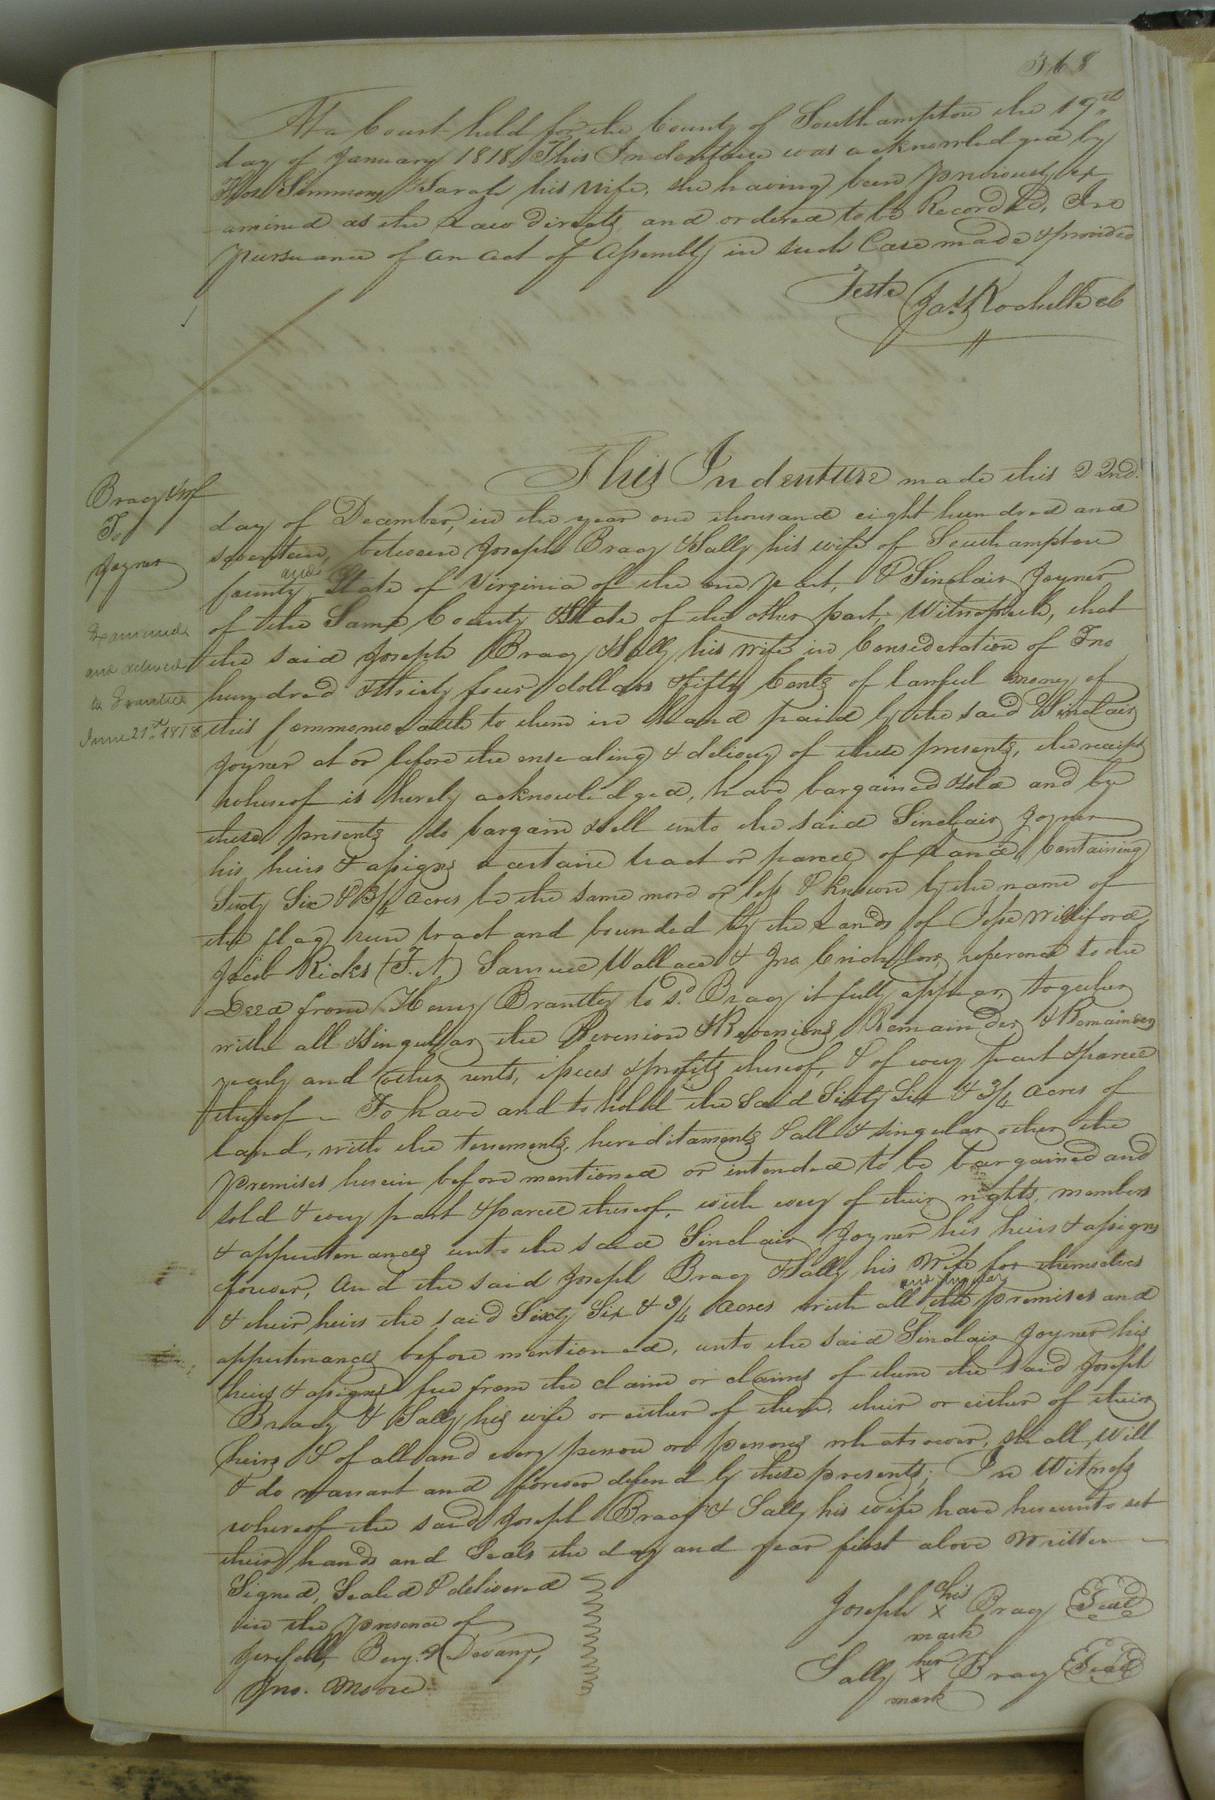 368
At a Court held for the County of Southampton the 19th
day of January 1818 This Indenture was acknowledged by
Thos Simmons & Sarah his wife, she having been previously ex
amined as the Law directs, and ordered to be Recorded, In
pursuance of an act of Assembly in such Case made & provided
Teste Jas Rochelle cb
Bracy & wf
To
Joyner
Examined
and delivered
to Grantee
June 21st 1818
This Indenture made this 22nd
day of December, in the year one thousand eight hundred and
seventeen, between Joseph Bracy & Sally his wife of Southampton
County and State of Virginia of the one part, & Sinclair Joyner
of the Same County & State of the other part, Witnesseth, that
the said Joseph Bracy & Sally his wife in Consideration of Two
hundred & thirty four dollars & fifty Cents of lawful money of
this Commonwealth to them in hand paid by the said Sinclair
Joyner at or before the ensealing & delivery of these presents, the receipt
whereof is hereby acknowledged, have bargained & sold and by
these presents do bargain & sell unto the said Sinclair Joyner
his heirs & assigns a certain tract or parcel of Land, Containing
Sixty Six & 3/4 acres be the same more or less & known by the name of
the flag run tract and bounded by the Lands of Jesse Williford,
Jacob Ricks (F. N) Samuel Wallace & Jno Crichlow, reference to the
Deed from Henry Brantley to sd. Bracy it fully appear, together
with all & singular the Reversion & Reversions, Remainder & Remainders
yearly and other rents, issues & profits thereof, & of every part & parcel
thereof - To have and to hold the said Sixty Six & 3/4 acres of
land, with the tenements, hereditaments & all & singular other the
premises herein before mentioned or intended to be bargained and
sold & every part & parcel thereof, with every of their rights, members
& appurtenances unto the said Sinclair Joyner his heirs & assigns
forever, And the said Joseph Bracy & Sally his Wife for themselves
& their heirs the said Sixty Six & 3/4 acres with all and singular the premises and
appurtenances before mentioned, unto the said Sinclair Joyner his
heirs & assigns free from the claim or claims of them the said Joseph
Bracy & Sally his wife or either of them, their or either of their
heirs & of all and every person or persons whatsoever, shall, will
& do warrant and forever defend by these presents; In Witness
whereof the said Joseph Bracy & Sally his wife have hereunto set
their hands and Seals the day and year first above Written
Signed, Sealed & delivered
in the presence of
Benj. Devany,
Jno. Moore
Joseph his x mark Bracy Seal
Sally her x mark Bracy Seal